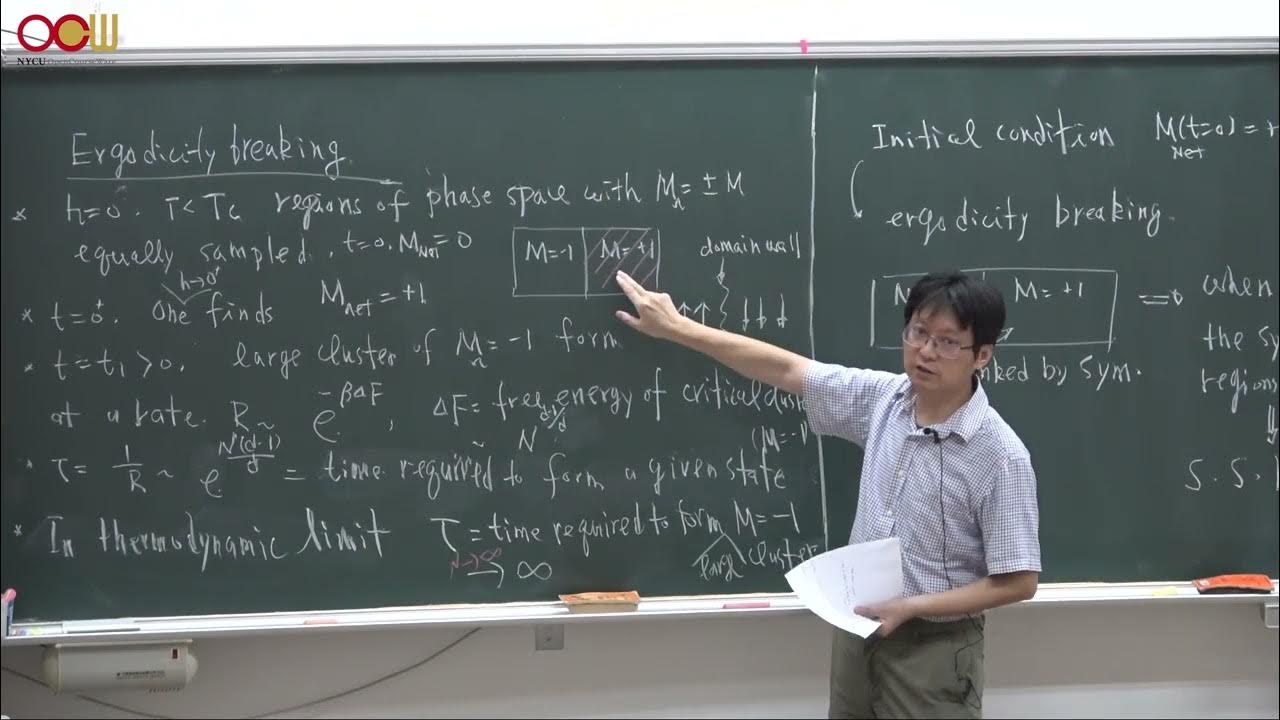 OCW
NYCU OpenCourseWare
Ergodicity breaking.
* h=0. T<Tc regions of phase space with Mn = ± M
equally sampled. t=0. MNet=0
h→0⁺
M=-1
M=+1
domain wall
↑↑ ↓↓↓
* t=0⁺. One finds Mnet = +1
* t=t₁>0. large cluster of Mn = -1 form
at a rate. R ~ e^{-βΔF}, ΔF = free energy of critical
~ N^{d-1/d}
(M=-1
* τ = 1/R ~ e^{N^{(d-1)/d}} = time required to form a given state
* In thermodynamic limit τ = time required to form M=-1
N→∞
→ ∞
large cluster
Initial condition MNet(t=0) =
ergodicity breaking.
M=+1
by sym.
⇒ when
the sy
regions
⇓
S.S.